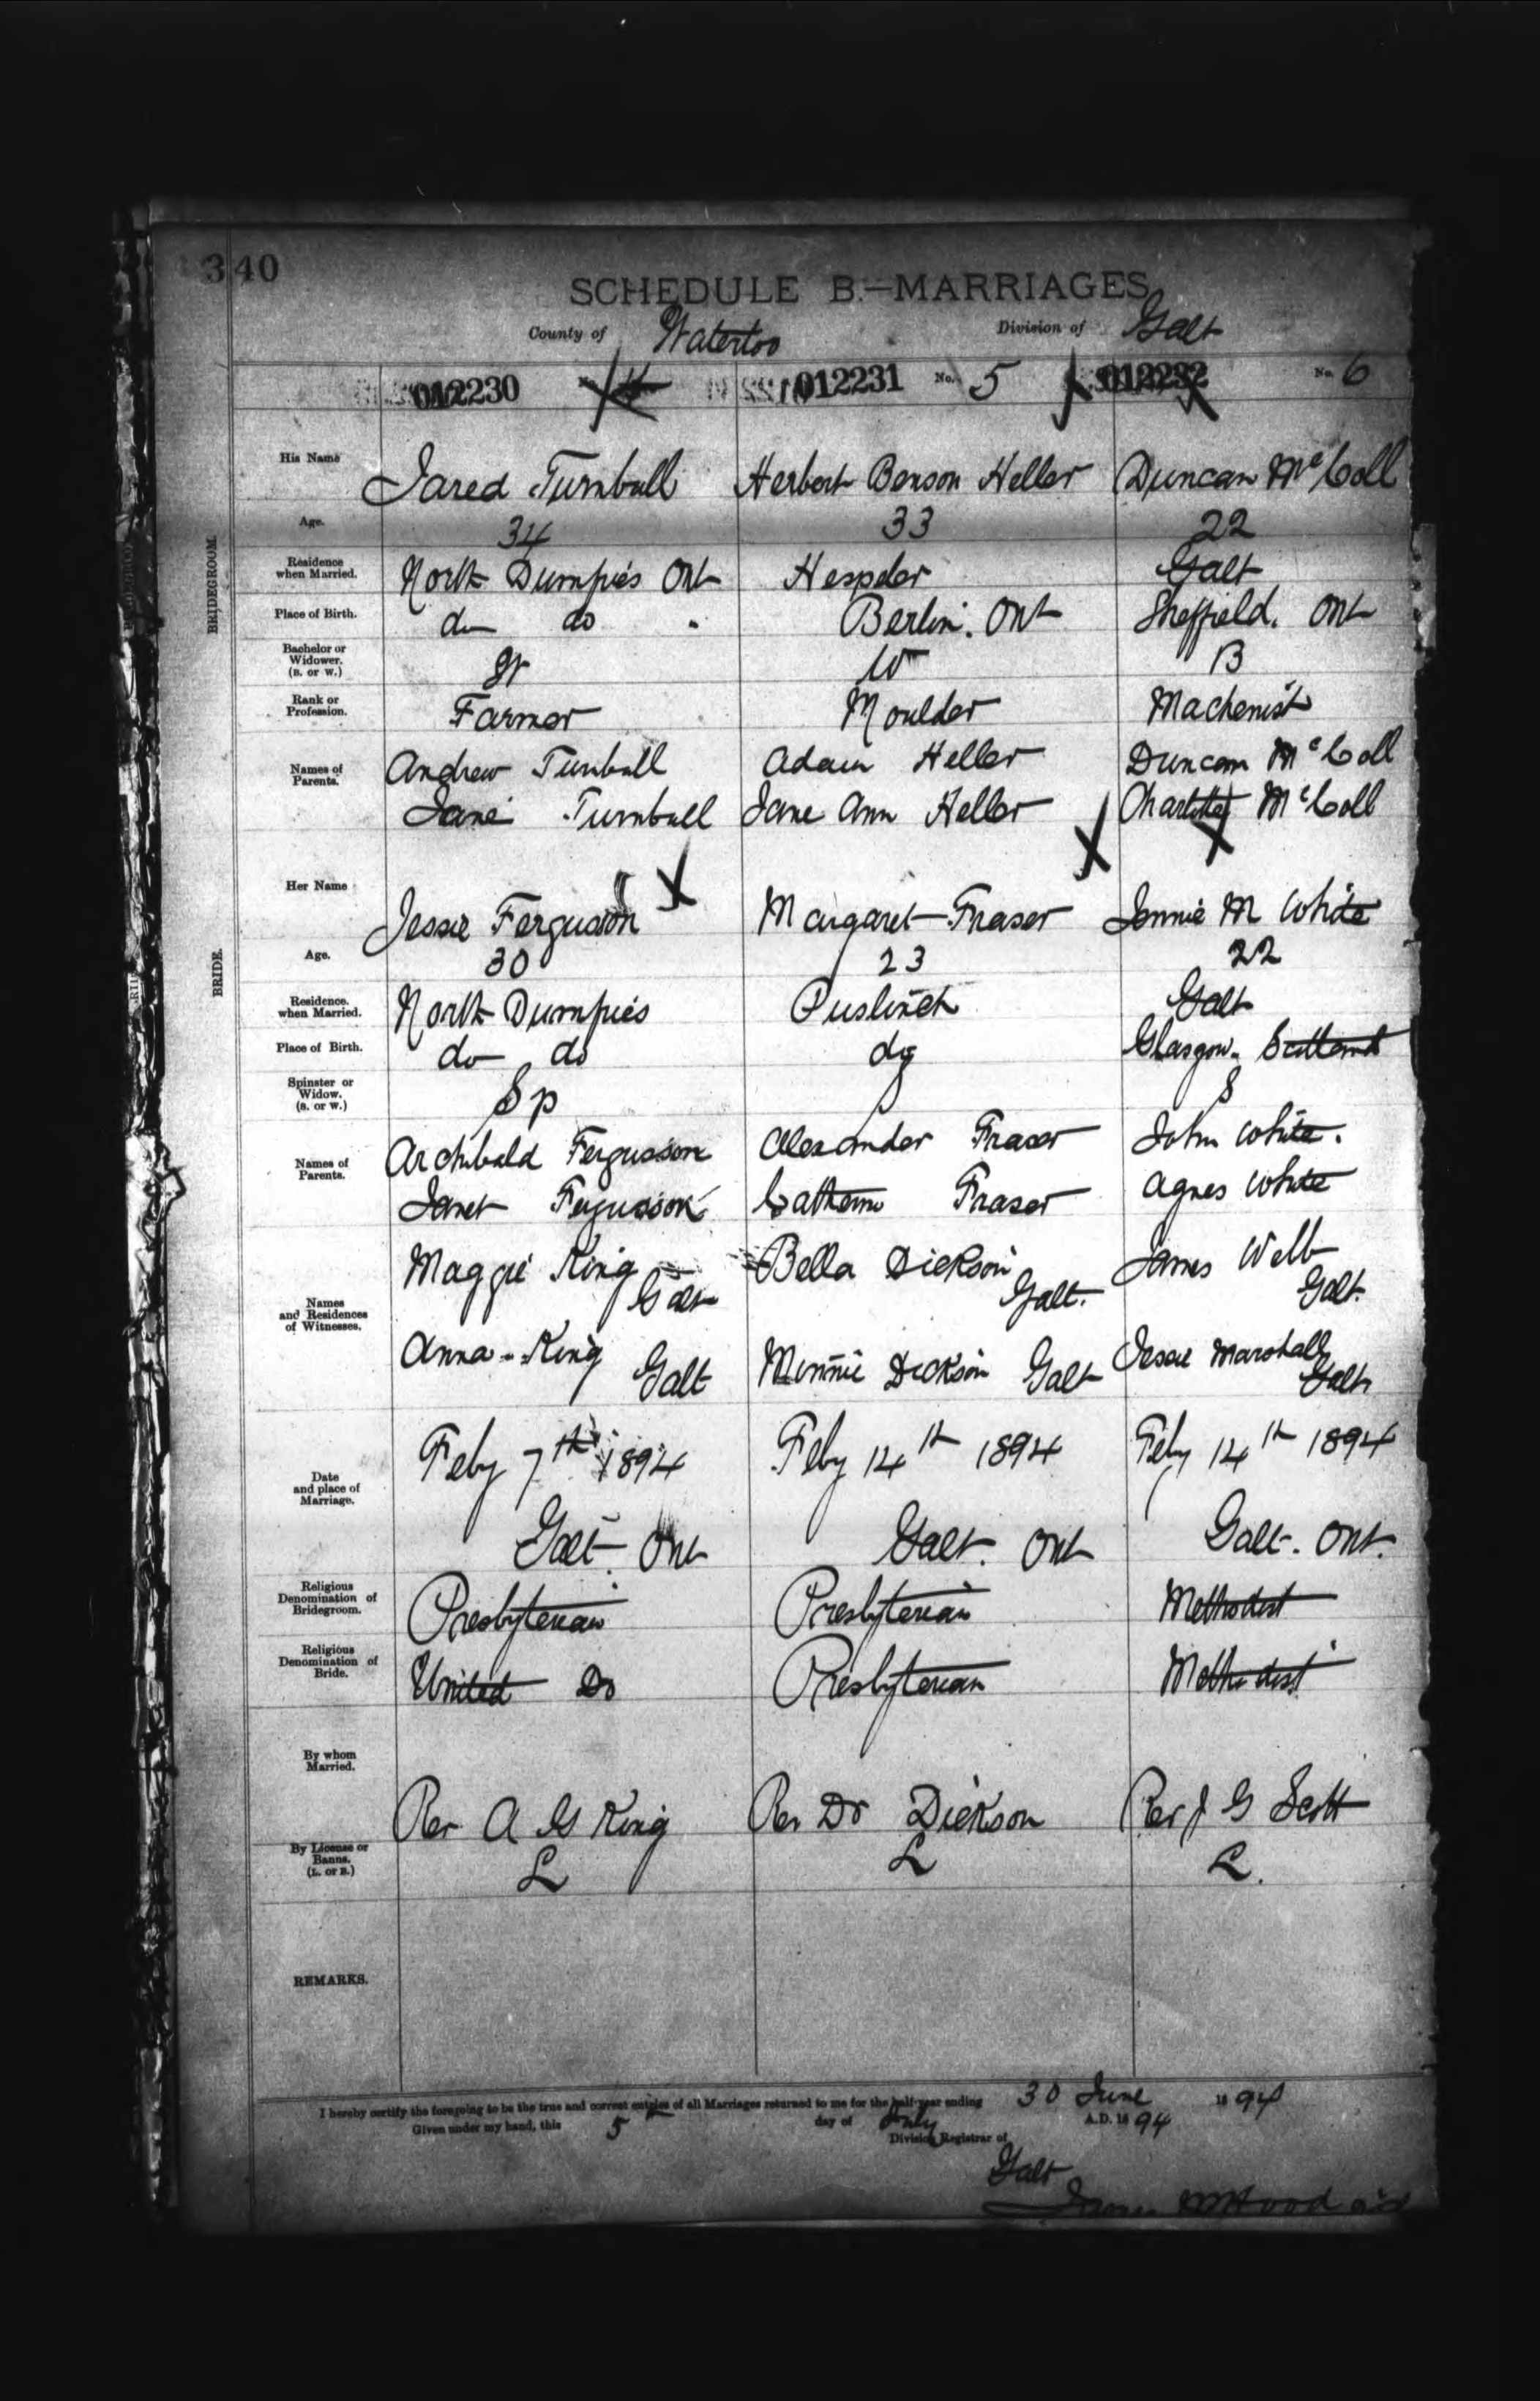 340
SCHEDULE B.—MARRIAGES
County of Waterloo Division of Galt
012230 4 012231 No. 5 012232 No. 6
BRIDEGROOM.
His Name Jared Turnbull Herbert Benson Heller Duncan McColl
Age. 34 33 22
Residence when Married. North Dumfries Ont Hespeler Galt
Place of Birth. do do " Berlin. Ont Sheffield. Ont
Bachelor or Widower. (B. or W.) W B
Rank or Profession. Farmer Moulder Machenist
Names of Parents. Andrew Turnbull Adam Heller Duncan McColl
Jane Turnbull Jane Ann Heller Charlotte McColl
BRIDE.
Her Name Jessie Fergusson Margaret Fraser Jennie M White
Age. 30 23 22
Residence. when Married. North Dumfries Puslinch Galt
Place of Birth. do do do Glasgow. Scotland
Spinster or Widow. (S. or W.) Sp S S
Names of Parents. Archibald Fergusson Alexander Fraser John White.
Janet Fergusson Catherine Fraser Agnes White
Names and Residences of Witnesses. Maggie King Galt Bella Dickson Galt. James Webb Galt.
Anna King Galt Minnie Dickson Galt Jessie Marshall Galt
Date and place of Marriage. Feby 7th 1894 Feby 14th 1894 Feby 14th 1894
Galt. Ont Galt. Ont Galt. Ont.
Religious Denomination of Bridegroom. Presbyterian Presbyterian Methodist
Religious Denomination of Bride. United Do Presbyterian Methodist
By whom Married. Rev A G King Rev Dr Dickson Rev J G Scott
By License or Banns. (L. or B.) L L L.
REMARKS.
I hereby certify the foregoing to be the true and correct entries of all Marriages returned to me for the half-year ending 30 June 1894
Given under my hand, this 5th day of July A.D. 1894
Division Registrar of
Galt